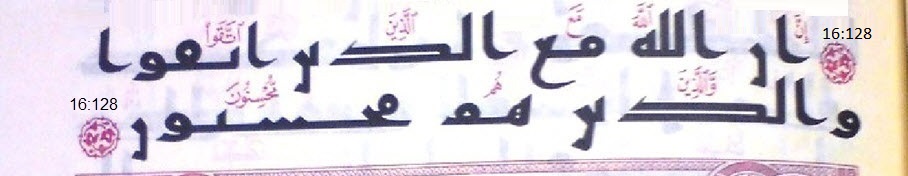 16:128
إِنَّ اللَّهَ مَعَ الَّذِينَ اتَّقَوا
ان الله مع الذين اتقوا
وَّالَّذِينَ هُم مُّحْسِنُونَ
والذين هم محسنون
16:128